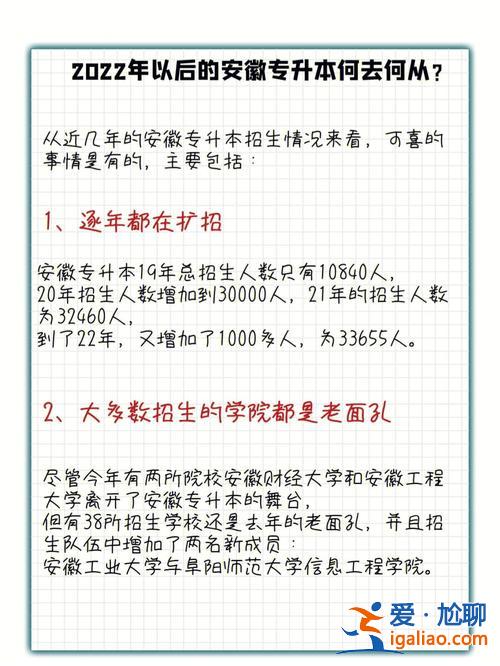 2022年以后的安徽专升本何去何从？
从近几年的安徽专升本招生情况来看，可喜的
事情是有的，主要包括：
1、逐年都在扩招
安徽专升本19年总招生人数只有10840人，
20年招生人数增加到30000人，21年的招生人数
为32460人，
到了22年，又增加了1000多人，为33655人。
2、大多数招生的学院都是老面孔
尽管今年有两所院校安徽财经大学和安徽工程
大学离开了安徽专升本的舞台，
但有38所招生学校还是去年的老面孔，并且招
生队伍中增加了两名新成员：
安徽工业大学与阜阳师范大学信息工程学院。
爱·尬聊
igaliao.com